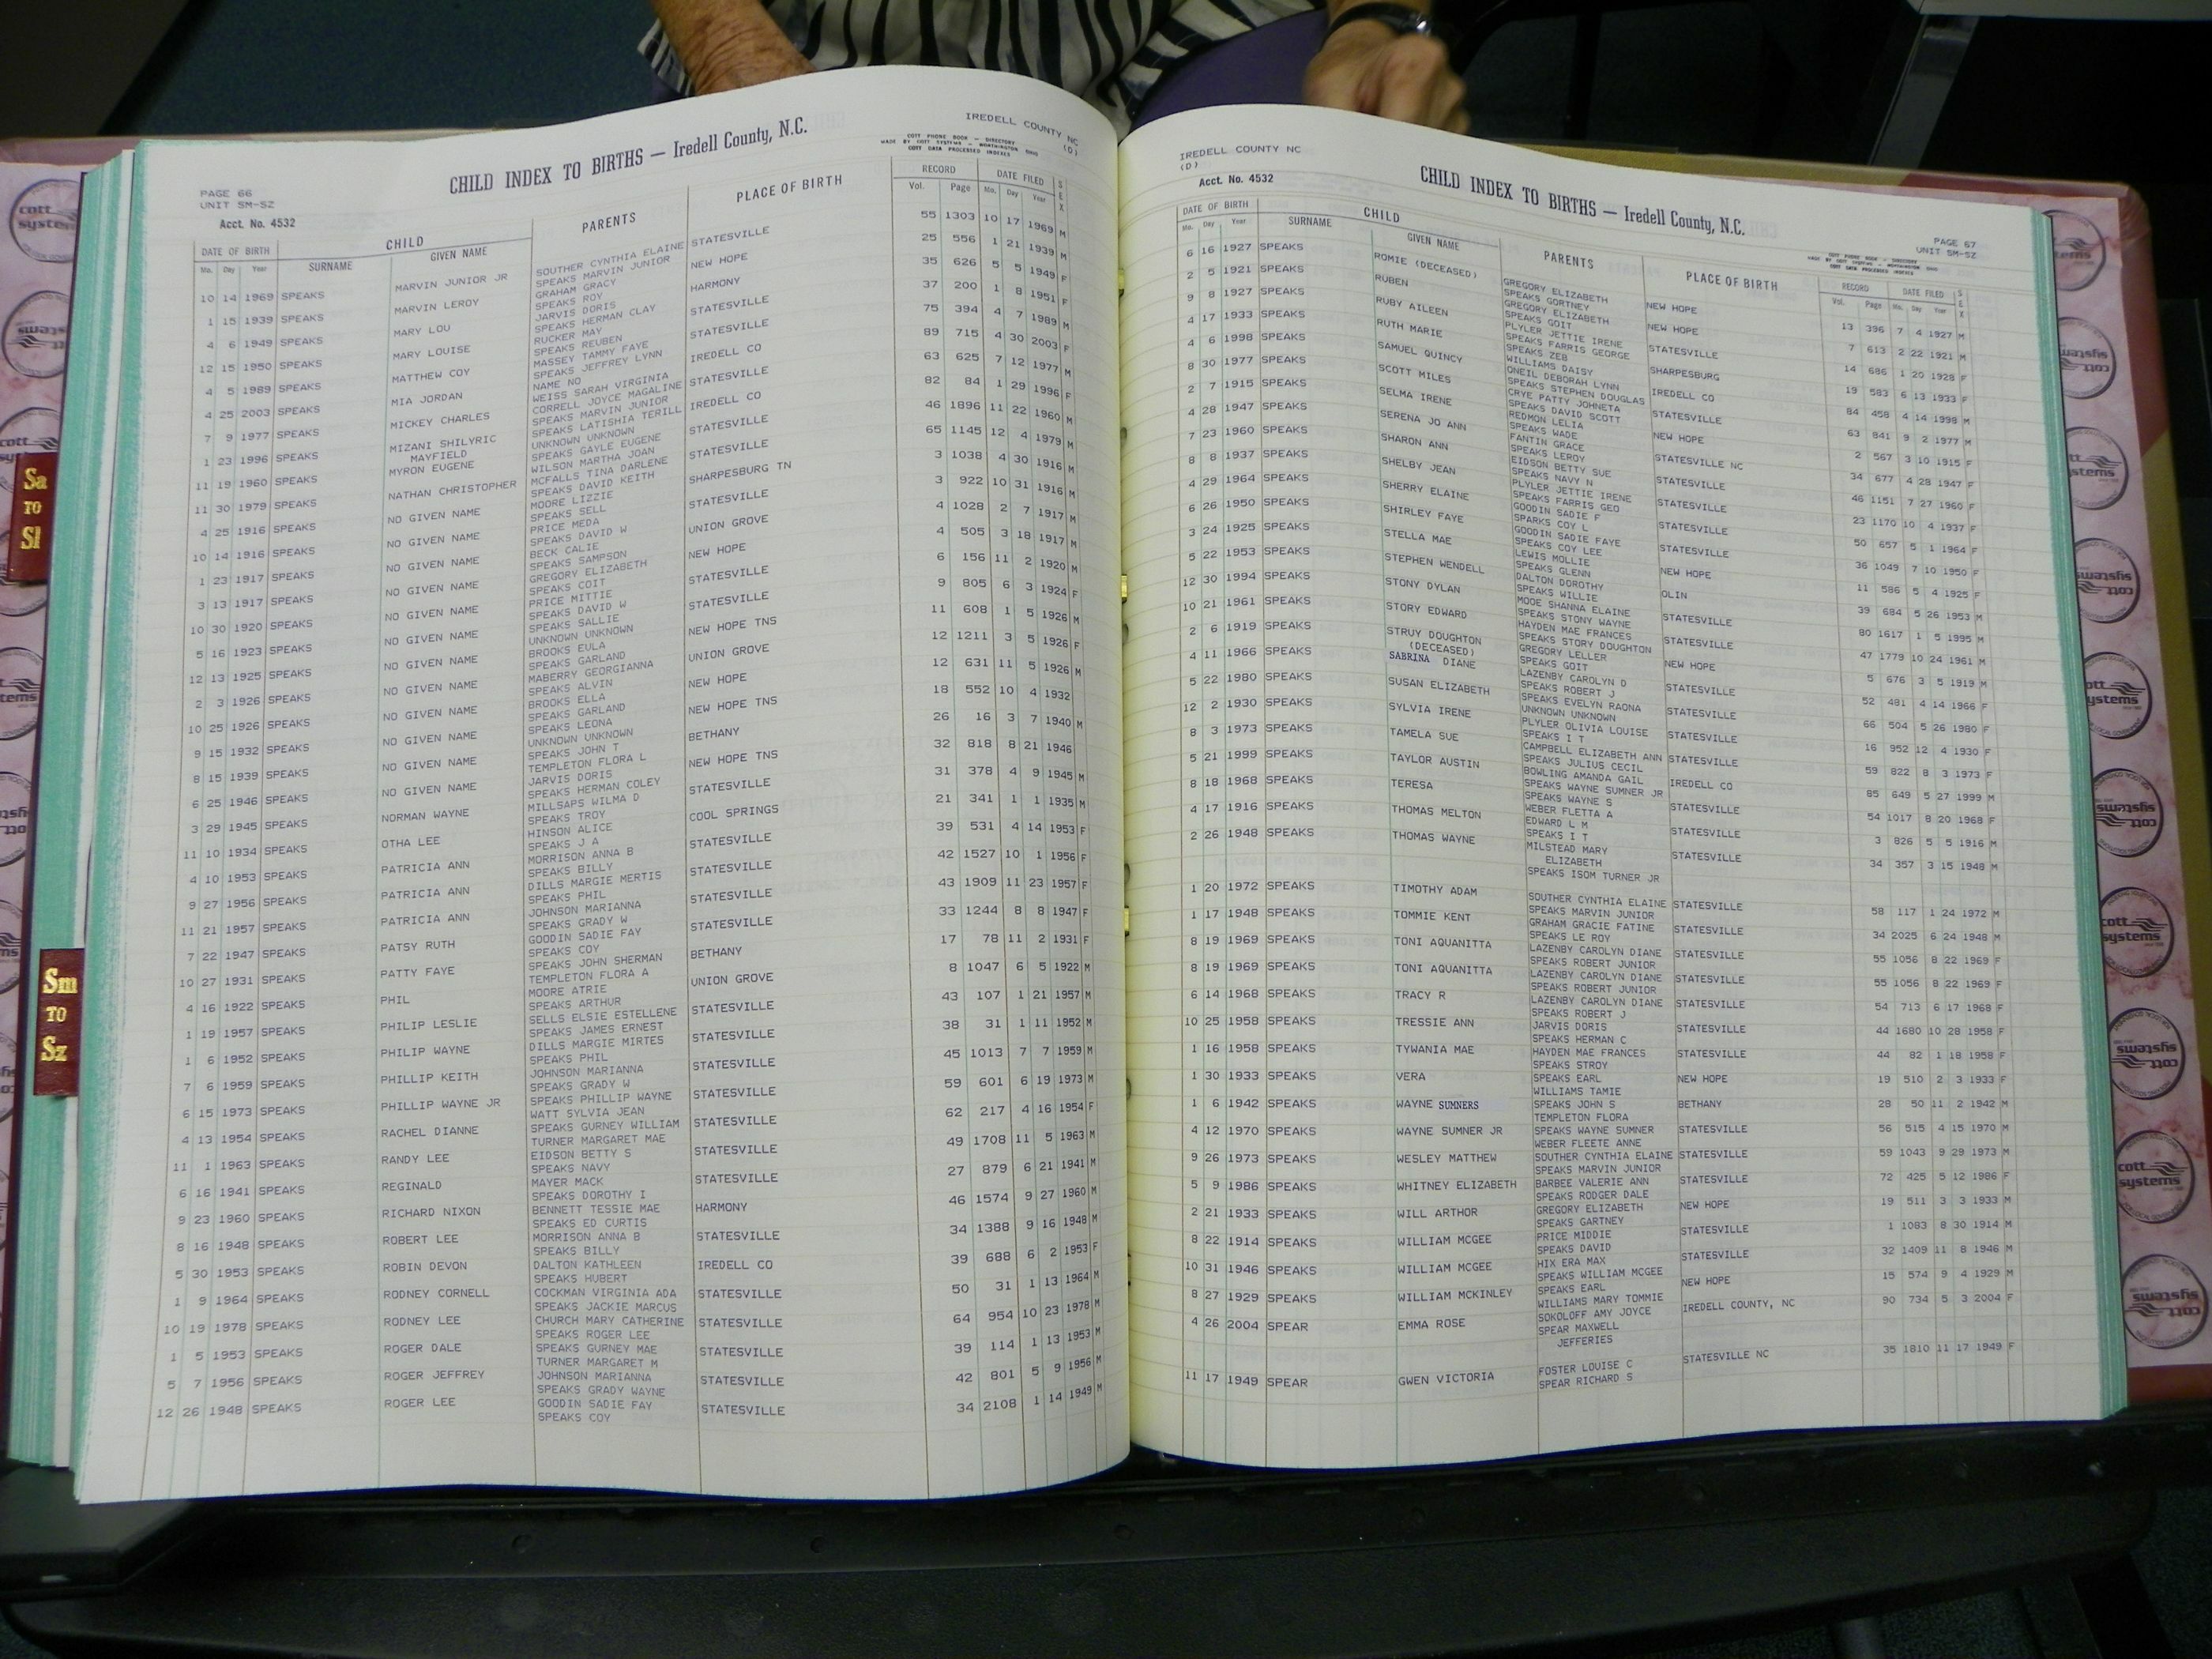 IREDELL COUNTY NC
(D)
COTT PHONE BOOK — DIRECTORY
MADE BY COTT SYSTEMS — WORTHINGTON OHIO
COTT DATA PROCESSED INDEXES
CHILD INDEX TO BIRTHS — Iredell County, N.C.
PAGE 66
UNIT SM-SZ
Acct. No. 4532
DATE OF BIRTH CHILD PARENTS PLACE OF BIRTH RECORD DATE FILED SEX
Mo. Day Year SURNAME GIVEN NAME Vol. Page Mo. Day Year
10 14 1969 SPEAKS MARVIN JUNIOR JR SOUTHER CYNTHIA ELAINE STATESVILLE 55 1303 10 17 1969 M
SPEAKS MARVIN JUNIOR
1 15 1939 SPEAKS MARVIN LEROY GRAHAM GRACY NEW HOPE 25 556 1 21 1939 M
SPEAKS ROY
4 6 1949 SPEAKS MARY LOU JARVIS DORIS HARMONY 35 626 5 5 1949 F
SPEAKS HERMAN CLAY
12 15 1950 SPEAKS MARY LOUISE RUCKER MAY STATESVILLE 37 200 1 8 1951 F
SPEAKS REUBEN
4 5 1989 SPEAKS MATTHEW COY MASSEY TAMMY FAYE STATESVILLE 75 394 4 7 1989 M
SPEAKS JEFFREY LYNN
4 25 2003 SPEAKS MIA JORDAN NAME NO IREDELL CO 89 715 4 30 2003 F
WEISS SARAH VIRGINIA
7 9 1977 SPEAKS MICKEY CHARLES CORRELL JOYCE MAGALINE STATESVILLE 63 625 7 12 1977 M
SPEAKS MARVIN JUNIOR
1 23 1996 SPEAKS MIZANI SHILYRIC SPEAKS LATISHIA TERILL IREDELL CO 82 84 1 29 1996 F
MAYFIELD UNKNOWN UNKNOWN
11 19 1960 SPEAKS MYRON EUGENE SPEAKS GAYLE EUGENE STATESVILLE 46 1896 11 22 1960 M
WILSON MARTHA JOAN
11 30 1979 SPEAKS NATHAN CHRISTOPHER MCFALLS TINA DARLENE STATESVILLE 65 1145 12 4 1979 M
SPEAKS DAVID KEITH
4 25 1916 SPEAKS NO GIVEN NAME MOORE LIZZIE SHARPESBURG TN 3 1038 4 30 1916 M
SPEAKS SELL
10 14 1916 SPEAKS NO GIVEN NAME PRICE MEDA STATESVILLE 3 922 10 31 1916 M
SPEAKS DAVID W
1 23 1917 SPEAKS NO GIVEN NAME BECK CALIE UNION GROVE 4 1028 2 7 1917 M
SPEAKS SAMPSON
3 13 1917 SPEAKS NO GIVEN NAME GREGORY ELIZABETH NEW HOPE 4 505 3 18 1917 M
SPEAKS COIT
10 30 1920 SPEAKS NO GIVEN NAME PRICE MITTIE STATESVILLE 6 156 11 2 1920 M
SPEAKS DAVID W
5 16 1923 SPEAKS NO GIVEN NAME SPEAKS SALLIE STATESVILLE 9 805 6 3 1924 F
UNKNOWN UNKNOWN
12 13 1925 SPEAKS NO GIVEN NAME BROOKS EULA NEW HOPE TNS 11 608 1 5 1926 M
SPEAKS GARLAND
2 3 1926 SPEAKS NO GIVEN NAME MABERRY GEORGIANNA UNION GROVE 12 1211 3 5 1926 F
SPEAKS ALVIN
10 25 1926 SPEAKS NO GIVEN NAME BROOKS ELLA NEW HOPE 12 631 11 5 1926 M
SPEAKS GARLAND
9 15 1932 SPEAKS NO GIVEN NAME SPEAKS LEONA NEW HOPE TNS 18 552 10 4 1932
UNKNOWN UNKNOWN
8 15 1939 SPEAKS NO GIVEN NAME SPEAKS JOHN T BETHANY 26 16 3 7 1940 M
TEMPLETON FLORA L
6 25 1946 SPEAKS NO GIVEN NAME JARVIS DORIS NEW HOPE TNS 32 818 8 21 1946
SPEAKS HERMAN COLEY
3 29 1945 SPEAKS NORMAN WAYNE MILLSAPS WILMA D STATESVILLE 31 378 4 9 1945 M
SPEAKS TROY
11 10 1934 SPEAKS OTHA LEE HINSON ALICE COOL SPRINGS 21 341 1 1 1935 M
SPEAKS J A
4 10 1953 SPEAKS PATRICIA ANN MORRISON ANNA B STATESVILLE 39 531 4 14 1953 F
SPEAKS BILLY
9 27 1956 SPEAKS PATRICIA ANN DILLS MARGIE MERTIS STATESVILLE 42 1527 10 1 1956 F
SPEAKS PHIL
11 21 1957 SPEAKS PATRICIA ANN JOHNSON MARIANNA STATESVILLE 43 1909 11 23 1957 F
SPEAKS GRADY W
7 22 1947 SPEAKS PATSY RUTH GOODIN SADIE FAY STATESVILLE 33 1244 8 8 1947 F
SPEAKS COY
10 27 1931 SPEAKS PATTY FAYE SPEAKS JOHN SHERMAN BETHANY 17 78 11 2 1931 F
TEMPLETON FLORA A
4 16 1922 SPEAKS PHIL MOORE ATRIE UNION GROVE 8 1047 6 5 1922 M
SPEAKS ARTHUR
1 19 1957 SPEAKS PHILIP LESLIE SELLS ELSIE ESTELLENE STATESVILLE 43 107 1 21 1957 M
SPEAKS JAMES ERNEST
1 6 1952 SPEAKS PHILIP WAYNE DILLS MARGIE MIRTES STATESVILLE 38 31 1 11 1952 M
SPEAKS PHIL
7 6 1959 SPEAKS PHILLIP KEITH JOHNSON MARIANNA STATESVILLE 45 1013 7 7 1959 M
SPEAKS GRADY W
6 15 1973 SPEAKS PHILLIP WAYNE JR SPEAKS PHILLIP WAYNE STATESVILLE 59 601 6 19 1973 M
WATT SYLVIA JEAN
4 13 1954 SPEAKS RACHEL DIANNE SPEAKS GURNEY WILLIAM STATESVILLE 62 217 4 16 1954 F
TURNER MARGARET MAE
11 1 1963 SPEAKS RANDY LEE EIDSON BETTY S STATESVILLE 49 1708 11 5 1963 M
SPEAKS NAVY
6 16 1941 SPEAKS REGINALD MAYER MACK STATESVILLE 27 879 6 21 1941 M
SPEAKS DOROTHY I
9 23 1960 SPEAKS RICHARD NIXON BENNETT TESSIE MAE HARMONY 46 1574 9 27 1960 M
SPEAKS ED CURTIS
8 16 1948 SPEAKS ROBERT LEE MORRISON ANNA B STATESVILLE 34 1388 9 16 1948 M
SPEAKS BILLY
5 30 1953 SPEAKS ROBIN DEVON DALTON KATHLEEN IREDELL CO 39 688 6 2 1953 F
SPEAKS HUBERT
1 9 1964 SPEAKS RODNEY CORNELL COCKMAN VIRGINIA ADA STATESVILLE 50 31 1 13 1964 M
SPEAKS JACKIE MARCUS
10 19 1978 SPEAKS RODNEY LEE CHURCH MARY CATHERINE STATESVILLE 64 954 10 23 1978 M
SPEAKS ROGER LEE
1 5 1953 SPEAKS ROGER DALE SPEAKS GURNEY MAE STATESVILLE 39 114 1 13 1953 M
TURNER MARGARET M
5 7 1956 SPEAKS ROGER JEFFREY JOHNSON MARIANNA STATESVILLE 42 801 5 9 1956 M
SPEAKS GRADY WAYNE
12 26 1948 SPEAKS ROGER LEE GOODIN SADIE FAY STATESVILLE 34 2108 1 14 1949 M
SPEAKS COY
IREDELL COUNTY NC
(D)
Acct. No. 4532
CHILD INDEX TO BIRTHS — Iredell County, N.C.
PAGE 67
UNIT SM-SZ
COTT PHONE BOOK — DIRECTORY
MADE BY COTT SYSTEMS — WORTHINGTON OHIO
COTT DATA PROCESSED INDEXES
DATE OF BIRTH CHILD PARENTS PLACE OF BIRTH RECORD DATE FILED SEX
Mo. Day Year SURNAME GIVEN NAME Vol. Page Mo. Day Year
6 16 1927 SPEAKS ROMIE (DECEASED) GREGORY ELIZABETH NEW HOPE 13 396 7 4 1927 M
SPEAKS GORTNEY
2 5 1921 SPEAKS RUBEN GREGORY ELIZABETH NEW HOPE 7 613 2 22 1921 M
SPEAKS GOIT
9 8 1927 SPEAKS RUBY AILEEN PLYLER JETTIE IRENE STATESVILLE 14 686 1 20 1928 F
SPEAKS FARRIS GEORGE
4 17 1933 SPEAKS RUTH MARIE SPEAKS ZEB SHARPESBURG 19 583 6 13 1933 F
WILLIAMS DAISY
4 6 1998 SPEAKS SAMUEL QUINCY ONEIL DEBORAH LYNN IREDELL CO 84 458 4 14 1998 M
SPEAKS STEPHEN DOUGLAS
8 30 1977 SPEAKS SCOTT MILES CRYE PATTY JOHNETA STATESVILLE 63 841 9 2 1977 M
SPEAKS DAVID SCOTT
2 7 1915 SPEAKS SELMA IRENE REDMON LELIA NEW HOPE 2 567 3 10 1915 F
SPEAKS WADE
4 28 1947 SPEAKS SERENA JO ANN FANTIN GRACE STATESVILLE NC 34 677 4 28 1947 F
SPEAKS LEROY
7 23 1960 SPEAKS SHARON ANN EIDSON BETTY SUE STATESVILLE 46 1151 7 27 1960 F
SPEAKS NAVY N
8 8 1937 SPEAKS SHELBY JEAN PLYLER JETTIE IRENE STATESVILLE 23 1170 10 4 1937 F
SPEAKS FARRIS GEO
4 29 1964 SPEAKS SHERRY ELAINE GOODIN SADIE F STATESVILLE 50 657 5 1 1964 F
SPARKS COY L
6 26 1950 SPEAKS SHIRLEY FAYE GOODIN SADIE FAYE NEW HOPE 36 1049 7 10 1950 F
SPEAKS COY LEE
3 24 1925 SPEAKS STELLA MAE LEWIS MOLLIE OLIN 11 586 5 4 1925 F
SPEAKS GLENN
5 22 1953 SPEAKS STEPHEN WENDELL DALTON DOROTHY STATESVILLE 39 684 5 26 1953 M
SPEAKS WILLIE
12 30 1994 SPEAKS STONY DYLAN MOOE SHANNA ELAINE STATESVILLE 80 1617 1 5 1995 M
SPEAKS STONY WAYNE
10 21 1961 SPEAKS STORY EDWARD HAYDEN MAE FRANCES NEW HOPE 47 1779 10 24 1961 M
SPEAKS STORY DOUGHTON
2 6 1919 SPEAKS STRUY DOUGHTON GREGORY LELLER STATESVILLE 5 676 3 5 1919 M
(DECEASED) SPEAKS GOIT
4 11 1966 SPEAKS SABRINA DIANE LAZENBY CAROLYN D STATESVILLE 52 481 4 14 1966 F
SPEAKS ROBERT J
5 22 1980 SPEAKS SUSAN ELIZABETH SPEAKS EVELYN RAONA STATESVILLE 66 504 5 26 1980 F
UNKNOWN UNKNOWN
12 2 1930 SPEAKS SYLVIA IRENE PLYLER OLIVIA LOUISE 16 952 12 4 1930 F
SPEAKS I T
8 3 1973 SPEAKS TAMELA SUE CAMPBELL ELIZABETH ANN STATESVILLE 59 822 8 3 1973 F
SPEAKS JULIUS CECIL
5 21 1999 SPEAKS TAYLOR AUSTIN BOWLING AMANDA GAIL IREDELL CO 85 649 5 27 1999 M
SPEAKS WAYNE SUMNER JR
8 18 1968 SPEAKS TERESA SPEAKS WAYNE S STATESVILLE 54 1017 8 20 1968 F
WEBER FLETTA A
4 17 1916 SPEAKS THOMAS MELTON EDWARD L M STATESVILLE 3 826 5 5 1916 M
SPEAKS I T
2 26 1948 SPEAKS THOMAS WAYNE MILSTEAD MARY STATESVILLE 34 357 3 15 1948 M
ELIZABETH
SPEAKS ISOM TURNER JR
1 20 1972 SPEAKS TIMOTHY ADAM SOUTHER CYNTHIA ELAINE STATESVILLE 58 117 1 24 1972 M
SPEAKS MARVIN JUNIOR
1 17 1948 SPEAKS TOMMIE KENT GRAHAM GRACIE FATINE STATESVILLE 34 2025 6 24 1948 M
SPEAKS LE ROY
8 19 1969 SPEAKS TONI AQUANITTA LAZENBY CAROLYN DIANE STATESVILLE 55 1056 8 22 1969 F
SPEAKS ROBERT JUNIOR
8 19 1969 SPEAKS TONI AQUANITTA LAZENBY CAROLYN DIANE STATESVILLE 55 1056 8 22 1969 F
SPEAKS ROBERT JUNIOR
6 14 1968 SPEAKS TRACY R LAZENBY CAROLYN DIANE STATESVILLE 54 713 6 17 1968 F
SPEAKS ROBERT J
10 25 1958 SPEAKS TRESSIE ANN JARVIS DORIS STATESVILLE 44 1680 10 28 1958 F
SPEAKS HERMAN C
1 16 1958 SPEAKS TYWANIA MAE HAYDEN MAE FRANCES STATESVILLE 44 82 1 18 1958 F
SPEAKS STROY
1 30 1933 SPEAKS VERA SPEAKS EARL NEW HOPE 19 510 2 3 1933 F
WILLIAMS TAMIE
1 6 1942 SPEAKS WAYNE SUMNERS SPEAKS JOHN S BETHANY 28 50 11 2 1942 M
TEMPLETON FLORA
4 12 1970 SPEAKS WAYNE SUMNER JR SPEAKS WAYNE SUMNER STATESVILLE 56 515 4 15 1970 M
WEBER FLEETE ANNE
9 26 1973 SPEAKS WESLEY MATTHEW SOUTHER CYNTHIA ELAINE STATESVILLE 59 1043 9 29 1973 M
SPEAKS MARVIN JUNIOR
5 9 1986 SPEAKS WHITNEY ELIZABETH BARBEE VALERIE ANN STATESVILLE 72 425 5 12 1986 F
SPEAKS RODGER DALE
2 21 1933 SPEAKS WILL ARTHOR GREGORY ELIZABETH NEW HOPE 19 511 3 3 1933 M
SPEAKS GARTNEY
8 22 1914 SPEAKS WILLIAM MCGEE PRICE MIDDIE STATESVILLE 1 1083 8 30 1914 M
SPEAKS DAVID
10 31 1946 SPEAKS WILLIAM MCGEE HIX ERA MAX STATESVILLE 32 1409 11 8 1946 M
SPEAKS WILLIAM MCGEE
8 27 1929 SPEAKS WILLIAM MCKINLEY SPEAKS EARL NEW HOPE 15 574 9 4 1929 M
WILLIAMS MARY TOMMIE
4 26 2004 SPEAR EMMA ROSE SOKOLOFF AMY JOYCE IREDELL COUNTY, NC 90 734 5 3 2004 F
SPEAR MAXWELL
JEFFERIES
11 17 1949 SPEAR GWEN VICTORIA FOSTER LOUISE C STATESVILLE NC 35 1810 11 17 1949 F
SPEAR RICHARD S
Sa
TO
Sl
Sm
TO
Sz
cott
systems